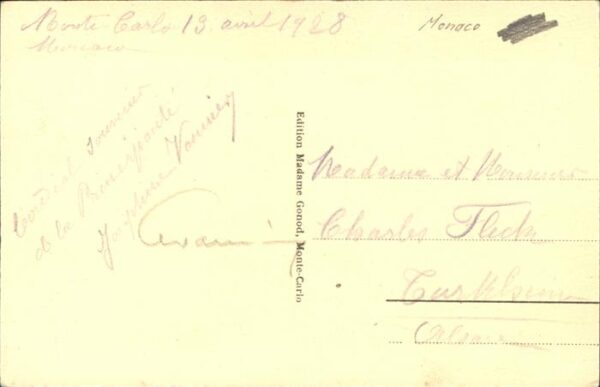 Monte-Carlo 13 avril 1928
Monaco
Monaco
Cordial souvenir
de la Principauté
Joséphine
Edition Madame Gonod, Monte-Carlo
Madame et Monsieur
Charles Fleck
Turkheim
(Alsace)